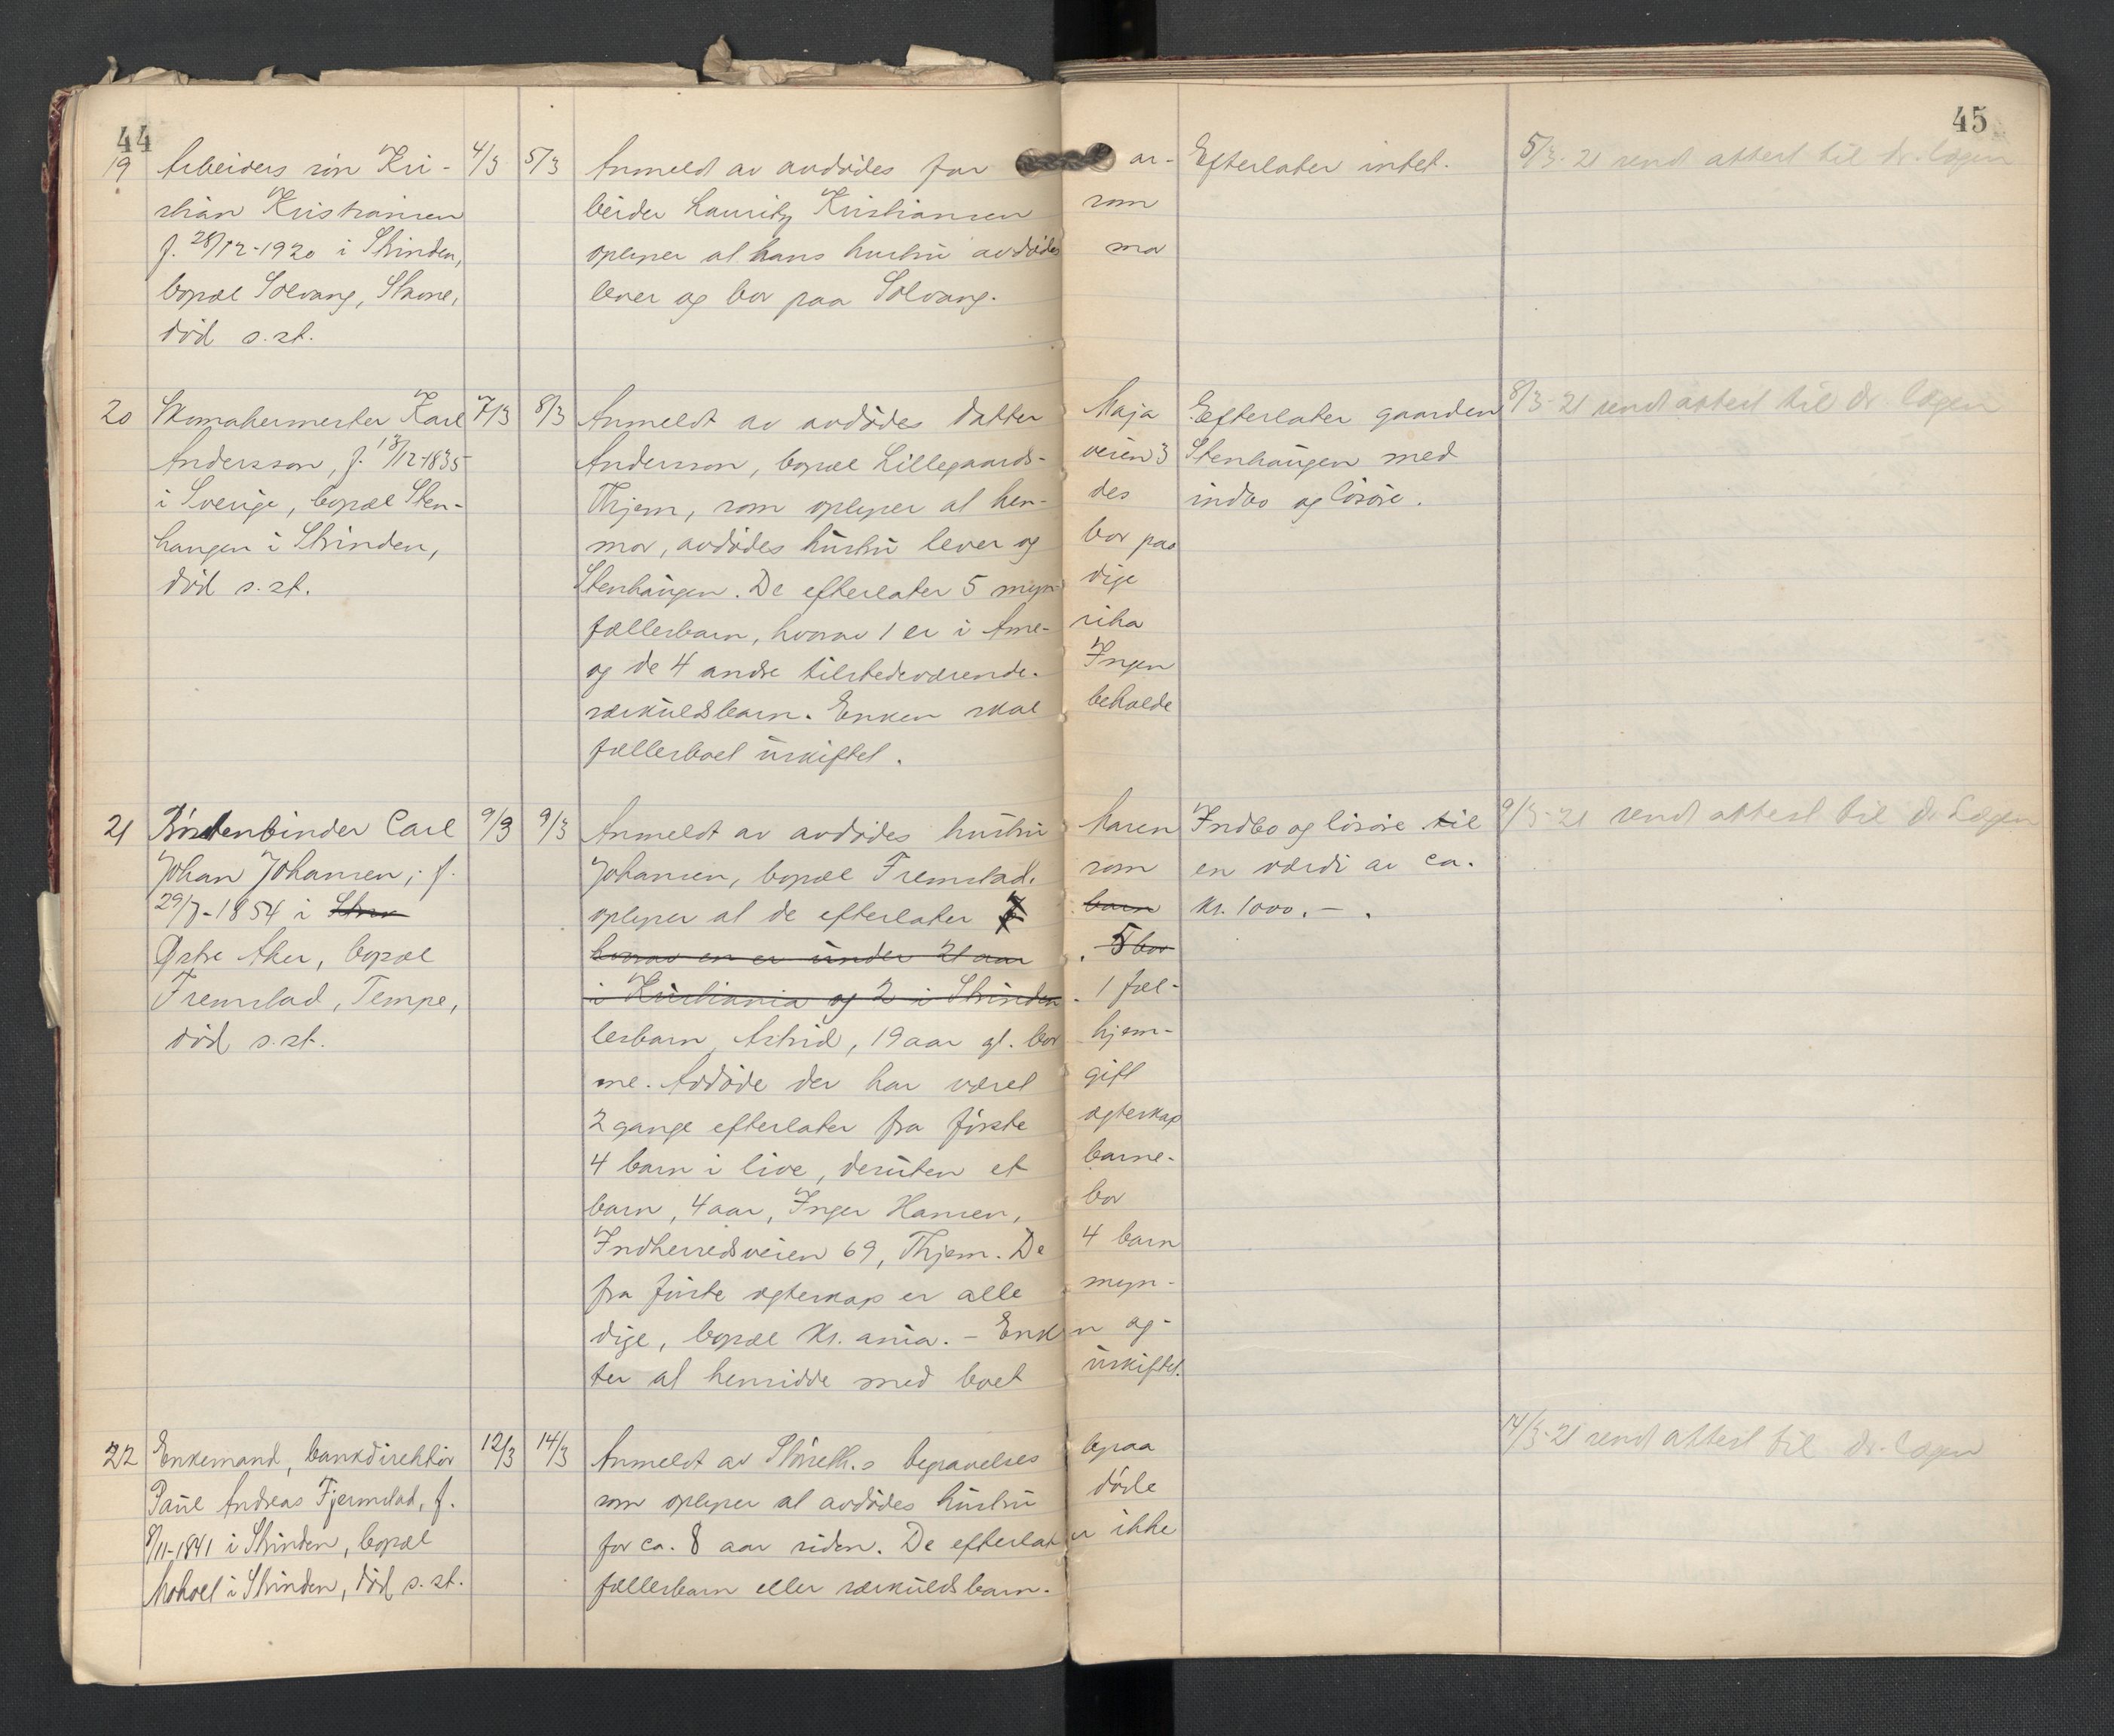 44
45
19 Arbeiders søn Kri- 4/3 5/3 Anmeldt av avdødes far ar- Efterlater intet. 5/3-21 sendt attest til dr. lægen
stian Kristiansen beider Lauritz Kristiansen som
f. 28/12-1920 i Strinden, oplyser at hans hustru avdødes mor
bopæl Solvang, Stavne, lever og bor paa Solvang.
død s.st.
20 Skomakermester Karl 7/3 8/3 Anmeldt av avdødes datter Maja Efterlater gaarden 8/3-21 sendt attest til dr. lægen
Andersson, f. 13/12-1835 Andersson, bopæl Lillegaards- veien 3 Stenhaugen med
i Sverige, bopæl Sten- Thjem, som oplyser at hen- des indbo og løsøre.
haugen i Strinden, mor, avdødes hustru lever og bor paa
død s.st. Stenhaugen. De efterlater 5 myn- dige
fællesbarn, hvorav 1 er i Ame- rika
og de 4 andre tilstedeværende. Ingen
særkuldsbarn. Enken skal beholde
fællesboet uskiftet.
21 Børstenbinder Carl 9/3 9/3 Anmeldt av avdødes hustru Maren Indbo og løsøre til 9/3-21 sendt attest til dr. Lægen
Johan Johansen, f. Johansen, bopæl Fremstad, som en værdi av ca.
29/7-1854 i Strin oplyser at de efterlater 7 barn kr. 1000.-.
Østre Aker, bopæl hvorav en er under 21 aar. 5 bor
Fremstad, Tempe, i Kristiania og 2 i Strinden. 1 fæl-
død s.st. lesbarn, Astrid, 19 aar gl. bor hjem-
me. Avdøde der har været gift
2 ganger efterlater fra første ægteskap
4 barn i live, desuten et barne-
barn, 4 aar, Inger Hansen, bor
Indherredsveien 69, Thjem. De 4 barn
fra første ægteskap er alle myn-
dige, bopæl Kr.ania. - Enken ag-
ter at hensidde med boet uskiftet.
22 Enkemand, bankdirektør 12/3 14/3 Anmeldt av begravelses bpaa 14/3-21 sendt attest til dr. lægen
Paul Andreas Fjermstad, f. som oplyser at avdødes hustru døde
8/11-1841 i Strinden, bopæl for ca. 8 aar siden. De efterlater ikke
Moholt i Strinden, død s.st. fællesbarn eller særkuldsbarn.